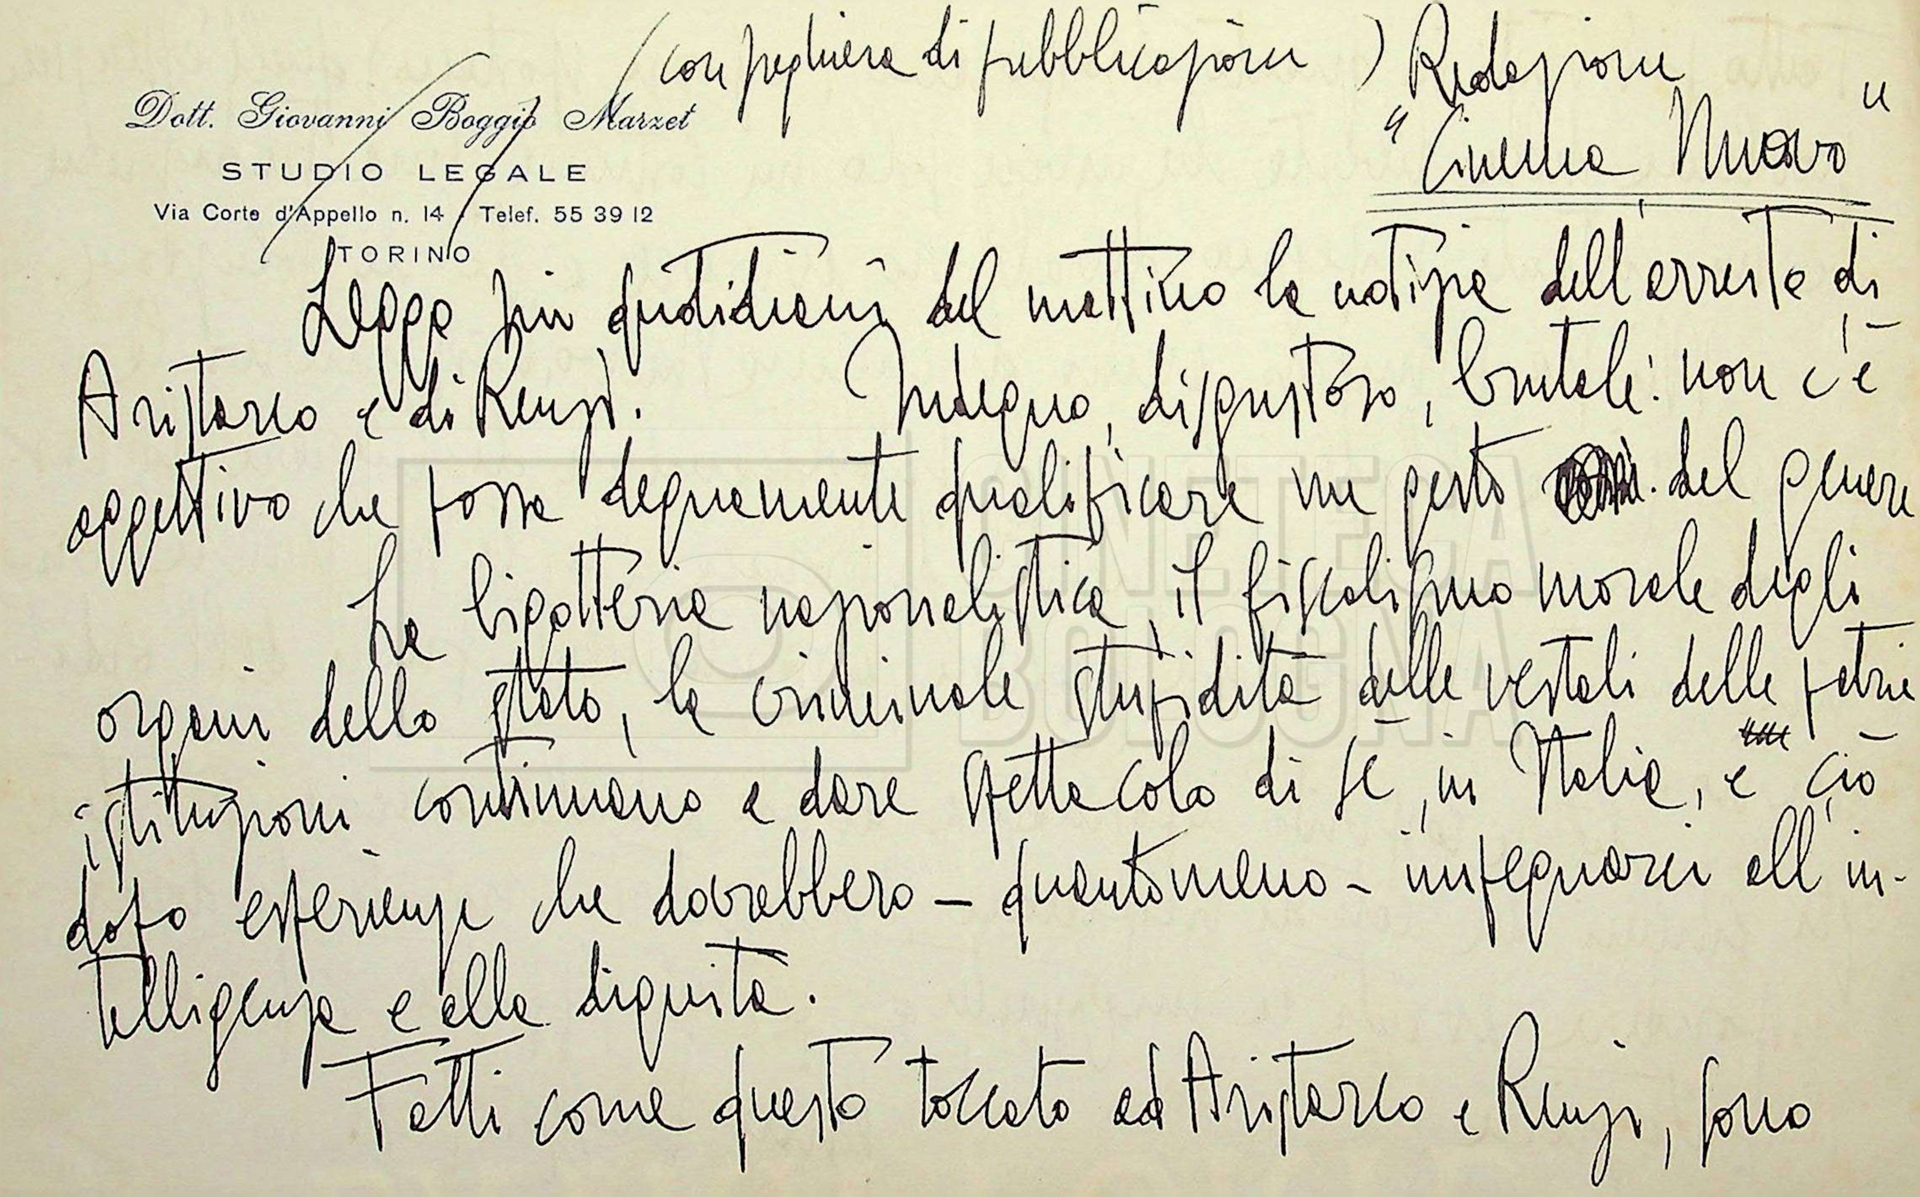 (con preghiera di pubblicazione) Redazione
"Cinema Nuovo"
Dott. Giovanni Boggio Marzet
STUDIO LEGALE
Via Corte d'Appello n. 14 - Telef. 55 39 12
TORINO
Leggo sui quotidiani del mattino la notizia dell'arresto di
Aristarco e di Renzi. Indegno, disgustoso, brutale: non c'è
aggettivo che possa degnamente qualificare un gesto del genere
La bigotteria nazionalistica, il fiscalismo morale degli
organi dello stato, la criminale stupidità delle vestali delle patrie
istituzioni continuano a dare spettacolo di sé, in Italia, e ciò
dopo esperienze che dovrebbero - quantomeno - insegnarci all'in-
telligenza e alla dignità.
Fatti come questo toccato ad Aristarco e Renzi, sono
CINETECA
BOLOGNA